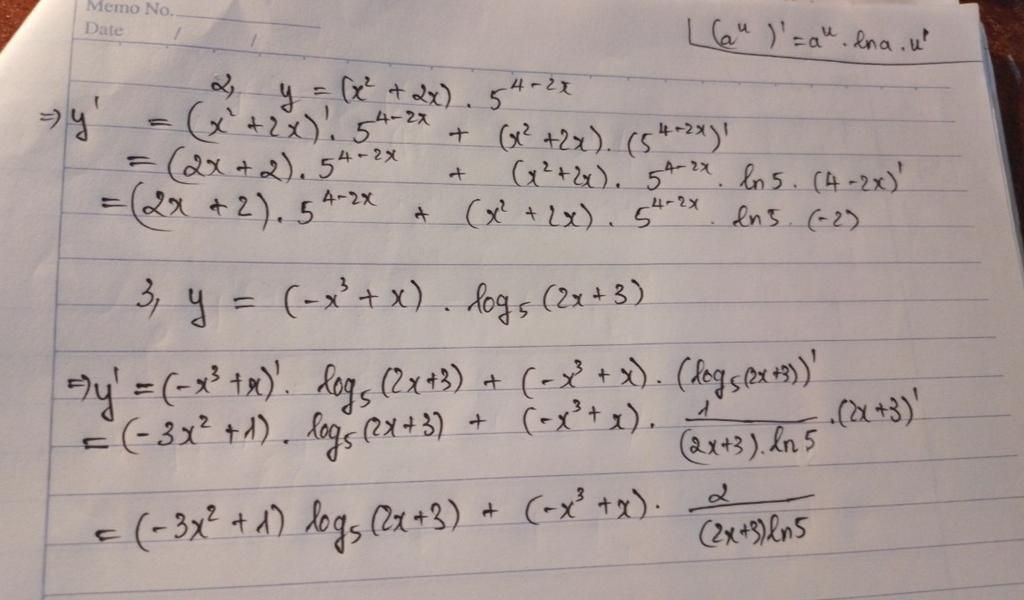 Memo No.
Date / /
(a^u)' = a^u . ln a . u'
2, y = (x² + 2x) . 5^(4-2x)
⇒ y' = (x² + 2x)' . 5^(4-2x) + (x² + 2x) . (5^(4-2x))'
= (2x + 2) . 5^(4-2x) + (x² + 2x) . 5^(4-2x) . ln 5 . (4 - 2x)'
= (2x + 2) . 5^(4-2x) + (x² + 2x) . 5^(4-2x) . ln 5 . (-2)
3, y = (-x³ + x) . log₅ (2x + 3)
⇒ y' = (-x³ + x)' . log₅ (2x + 3) + (-x³ + x) . (log₅ (2x + 3))'
= (-3x² + 1) . log₅ (2x + 3) + (-x³ + x) . 1 / ((2x + 3) . ln 5) . (2x + 3)'
= (-3x² + 1) log₅ (2x + 3) + (-x³ + x) . 2 / ((2x + 3) ln 5)